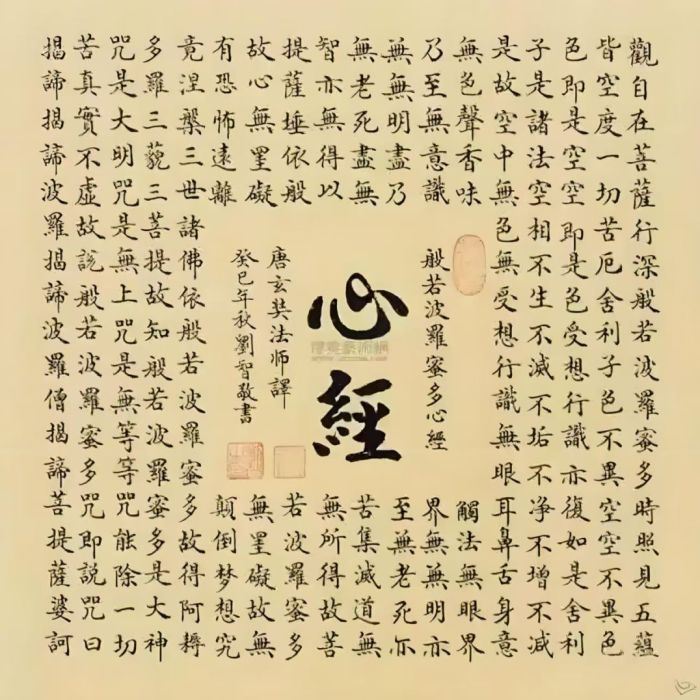 觀自在菩薩行深般若波羅蜜多時照見五蘊
皆空度一切苦厄舍利子色不異空空不異色
色即是空空即是色受想行識亦復如是舍利
子是諸法空相不生不滅不垢不净不增不減
是故空中無色無受想行識無眼耳鼻舌身意
無色聲香味觸法無眼界
乃至無意識界無無明亦
無無明盡乃至無老死亦
無老死盡無苦集滅道無
智亦無得以無所得故菩
提薩埵依般若波羅蜜多
故心無罣礙無罣礙故無
有恐怖遠離顛倒梦想究
竟涅槃三世諸佛依般若波羅蜜多故得阿耨
多羅三藐三菩提故知般若波羅蜜多是大神
咒是大明咒是無上咒是無等等咒能除一切
苦真實不虛故說般若波羅蜜多咒即說咒曰
揭諦揭諦波羅揭諦波羅僧揭諦菩提薩婆訶
般若波羅蜜多心經
心經
唐玄奘法师譯
癸巳年秋劉智敬書